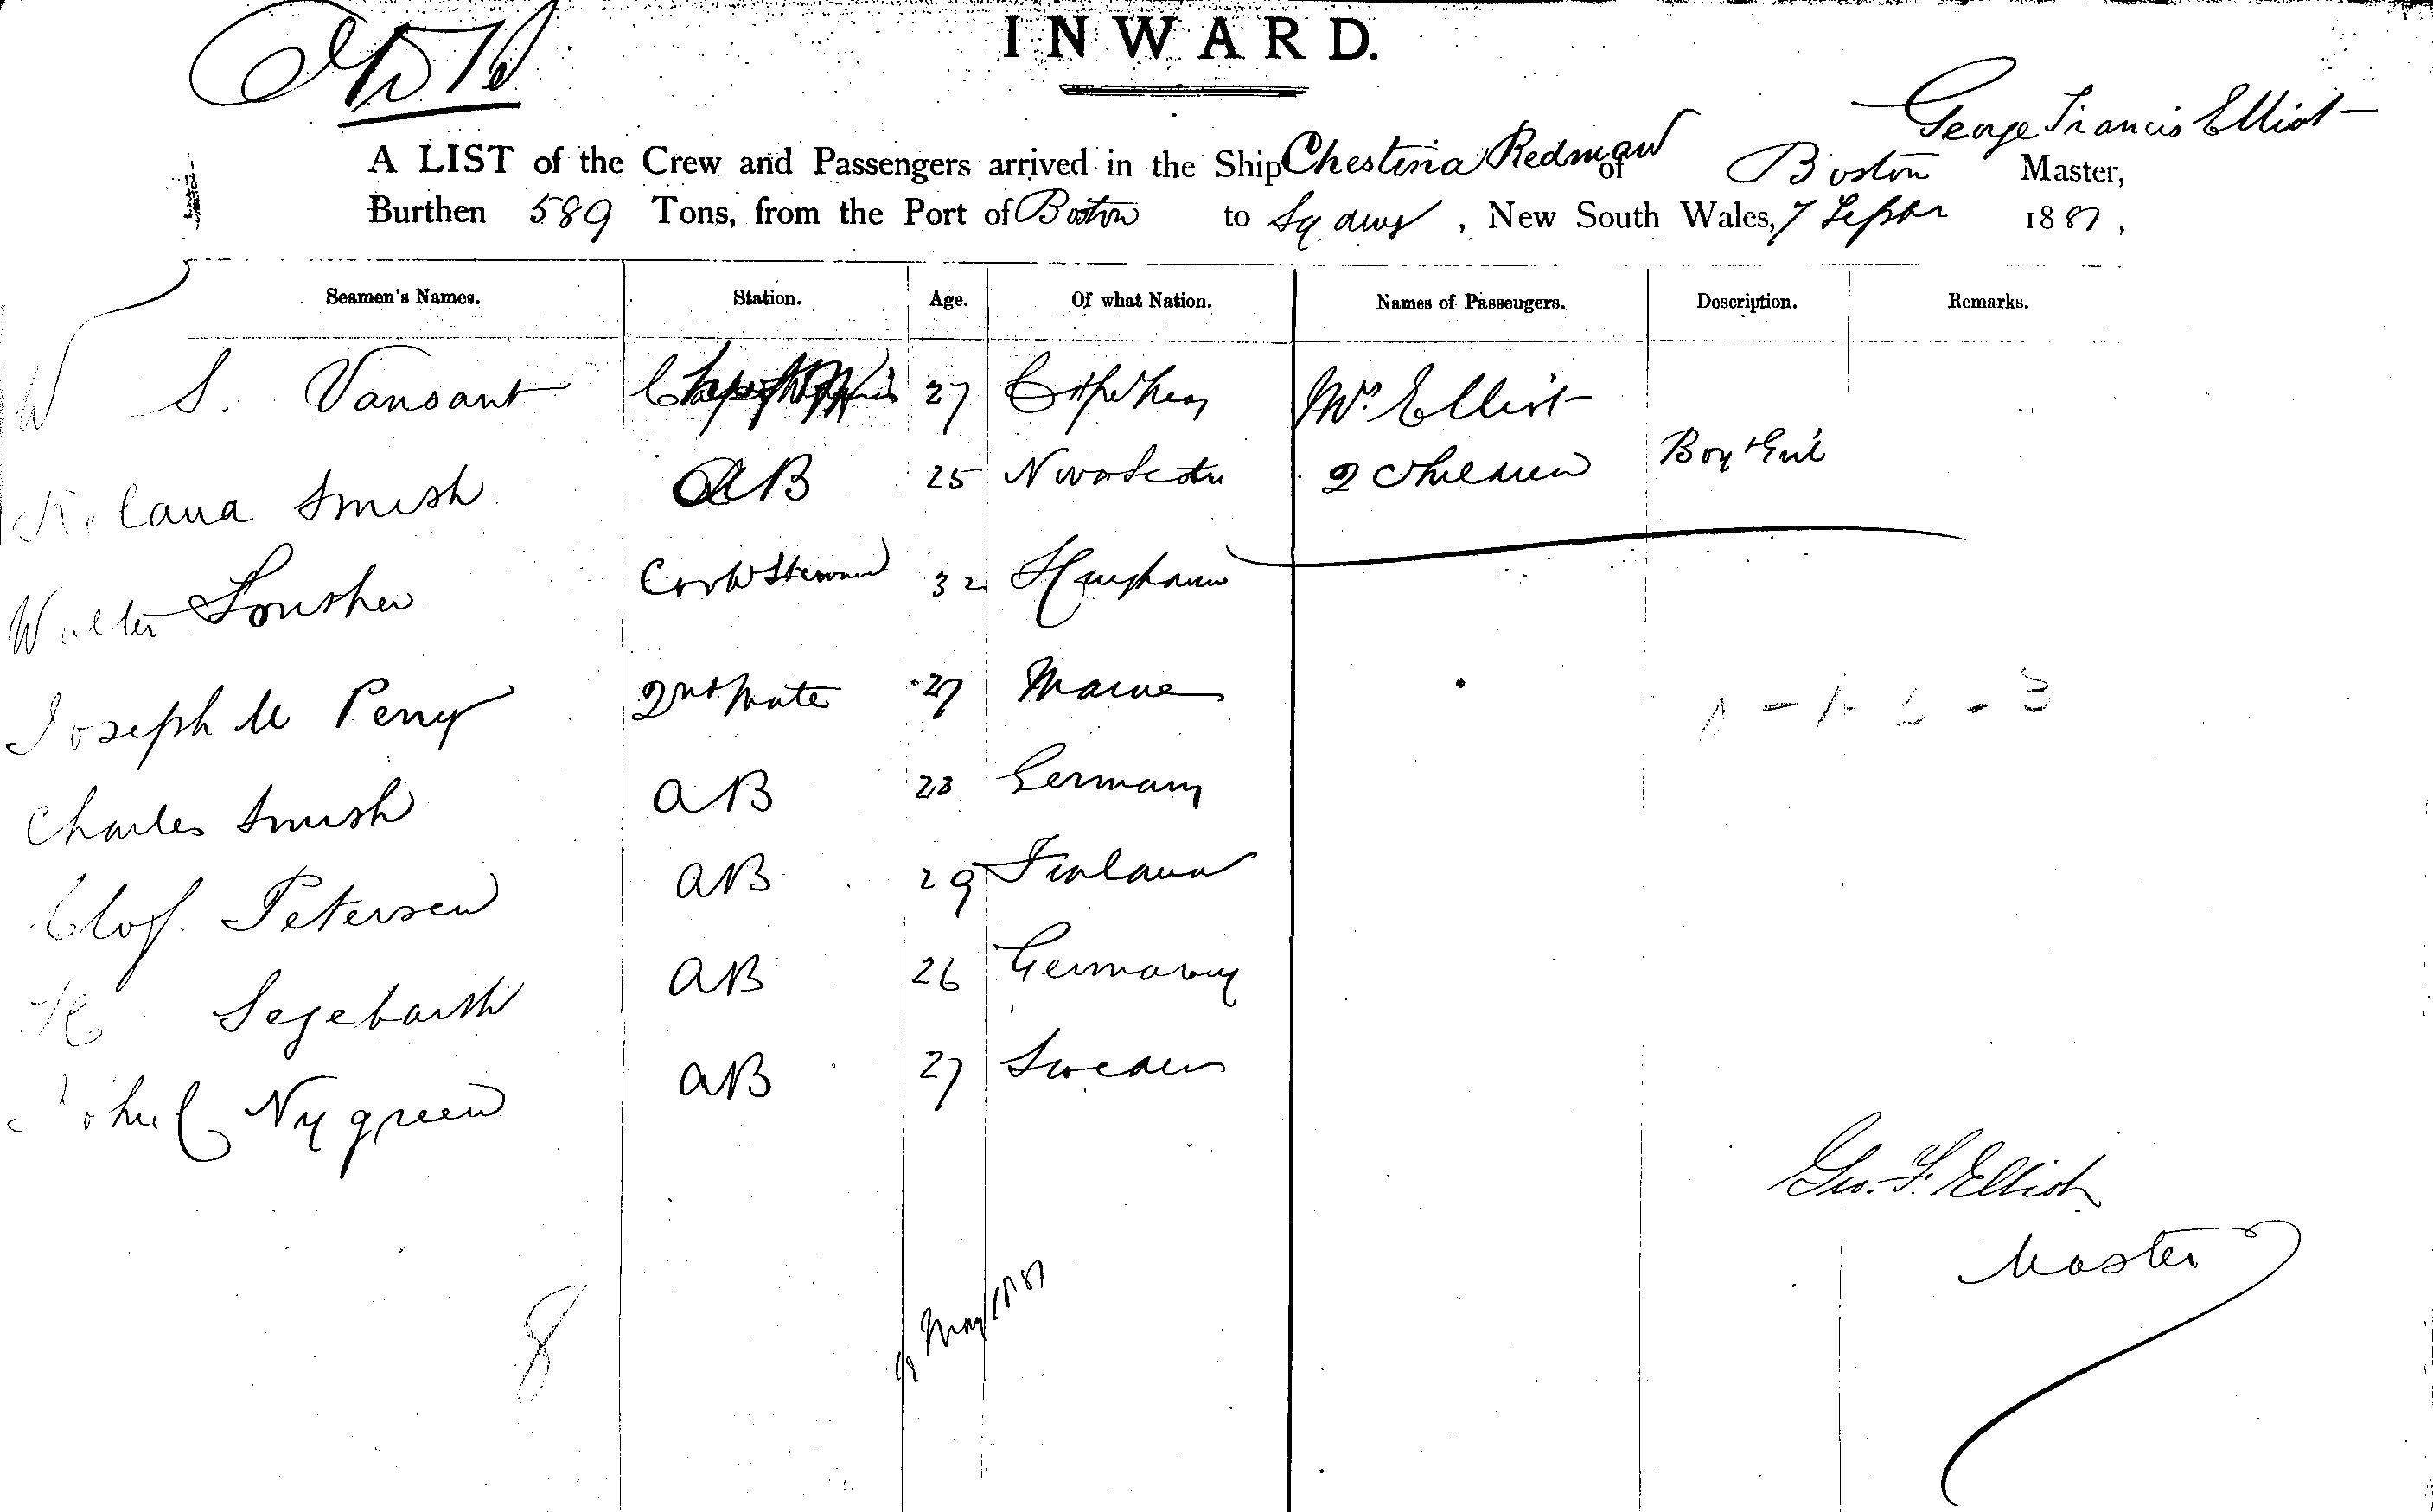 INWARD.
George Francis Elliot
A LIST of the Crew and Passengers arrived in the Ship Chestina Redman of Boston Master,
Burthen 589 Tons, from the Port of Boston to Sydney, New South Wales, 7 Septbr 1887,
Seamen's Names. Station. Age. Of what Nation. Names of Passengers. Description. Remarks.
W S. Vansant 27 Mrs Elliot
Roland Smith AB 25 Nova Scotia 2 Children Boy & Girl
Walter Cook & Steward 32
Joseph M Perry 2nd Mate 27 Maine
Charles Smith AB 28 Germany
Olof. Petersen AB 29 Finland
H Segebarth AB 26 Germany
John C Nygreen AB 27 Sweden
Geo. F. Elliot
Master
May 1887
8